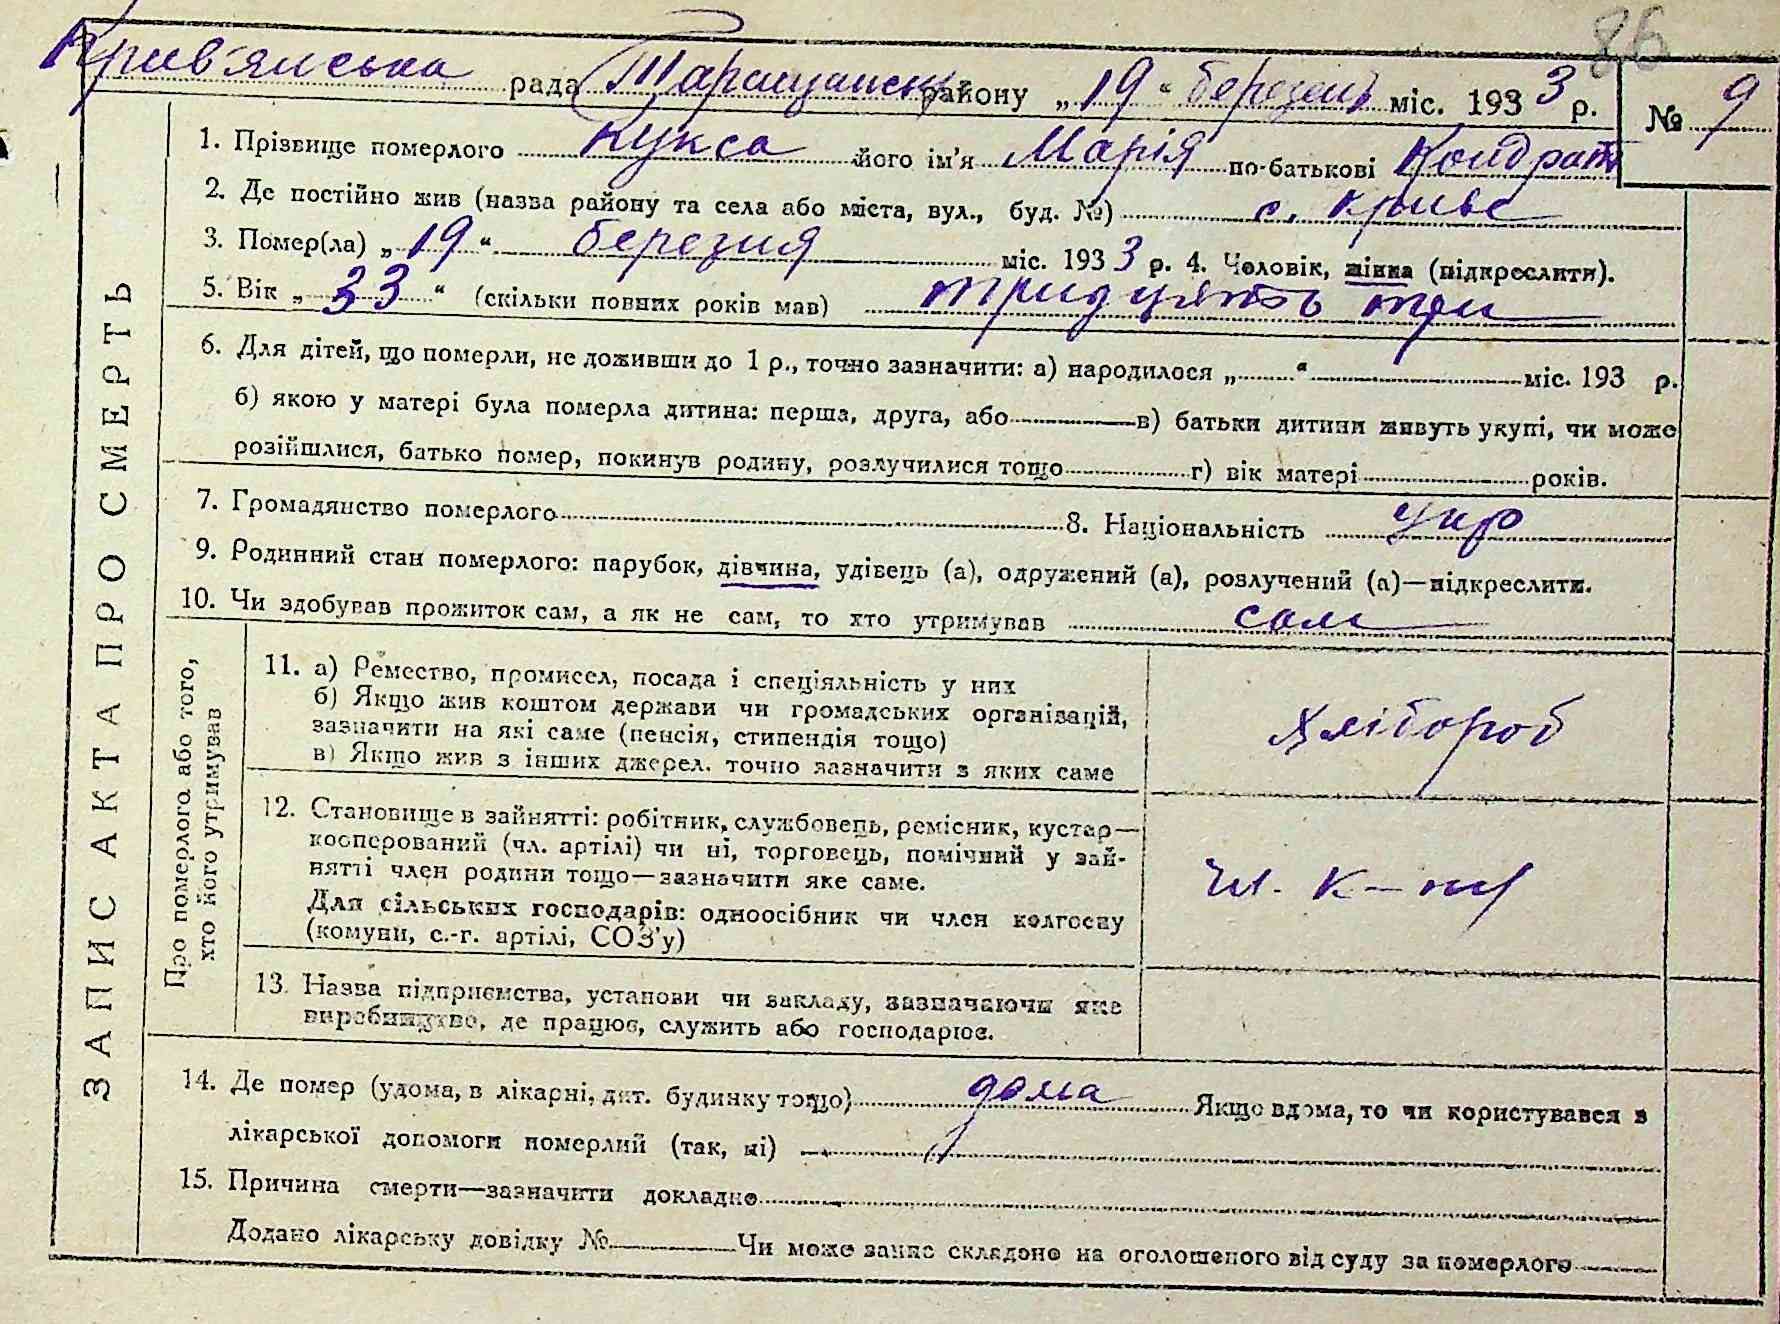 86
Крив'янська рада Таращанськ району „19“ березень міс. 1933 р. № 9
ЗАПИС АКТА ПРО СМЕРТЬ
1. Прізвище померлого Кукса його ім'я Марія по-батькові Кондрат
2. Де постійно жив (назва району та села або міста, вул., буд. №) с. Криве
3. Помер(ла) „19“ березня міс. 1933 р. 4. Чоловік, жінка (підкреслити).
5. Вік „33“ (скільки повних років мав) тридцять три
6. Для дітей, що померли, не доживши до 1 р., точно зазначити: а) народилося „ “ міс. 193 р.
б) якою у матері була померла дитина: перша, друга, або в) батьки дитини живуть укупі, чи може
розійшлися, батько помер, покинув родину, розлучилися тощо г) вік матері років.
7. Громадянство померлого 8. Національність укр
9. Родинний стан померлого: парубок, дівчина, удівець (а), одружений (а), розлучений (а)—підкреслити.
10. Чи здобував прожиток сам, а як не сам, то хто утримував сам
Про померлого або того,
хто його утримував
11. а) Ремество, промисел, посада і спеціяльність у них
б) Якщо жив коштом держави чи громадських організацій,
зазначити на які саме (пенсія, стипендія тощо)
в) Якщо жив з інших джерел, точно зазначити з яких саме
хлібороб
12. Становище в зайнятті: робітник, службовець, ремісник, кустар—
кооперований (чл. артілі) чи ні, торговець, помічний у зай-
нятті член родини тощо—зазначити яке саме.
Для сільських господарів: одноосібник чи член колгоспу
(комуни, с.-г. артілі, СОЗ'у)
чл. к-пу
13. Назва підприємства, установи чи закладу, зазначаючи яке
виробництво, де працює, служить або господарює.
14. Де помер (удома, в лікарні, дит. будинку тощо) дома Якщо вдома, то чи користувався з
лікарської допомоги померлий (так, ні)
15. Причина смерти—зазначити докладно
Додано лікарську довідку № Чи може запис складоно на оголошеного від суду за померлого